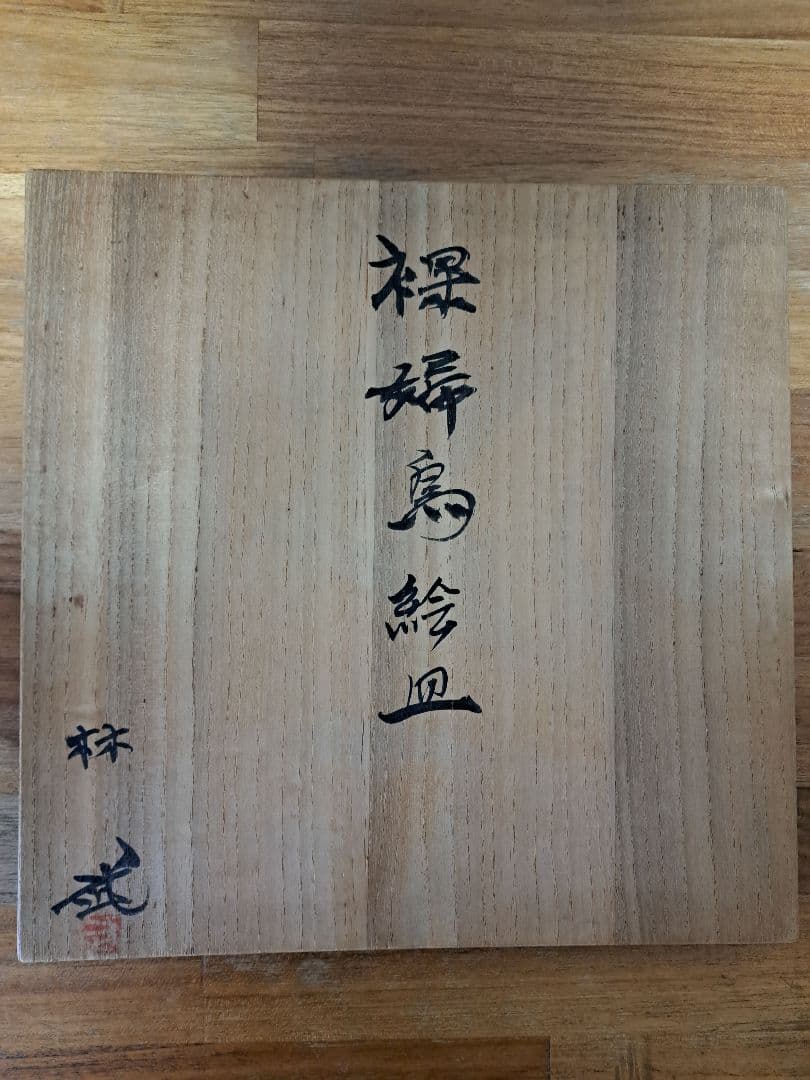 裸婦鳥絵皿
林 武